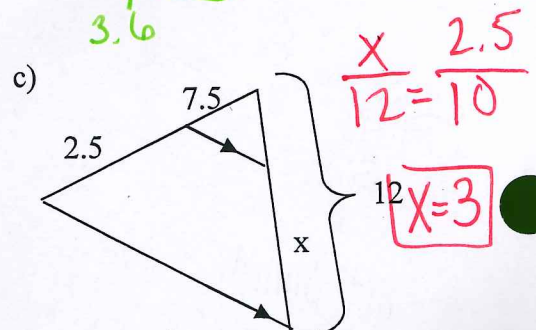 3.6
c)
7.5
2.5
12
x
x/12 = 2.5/10
x=3